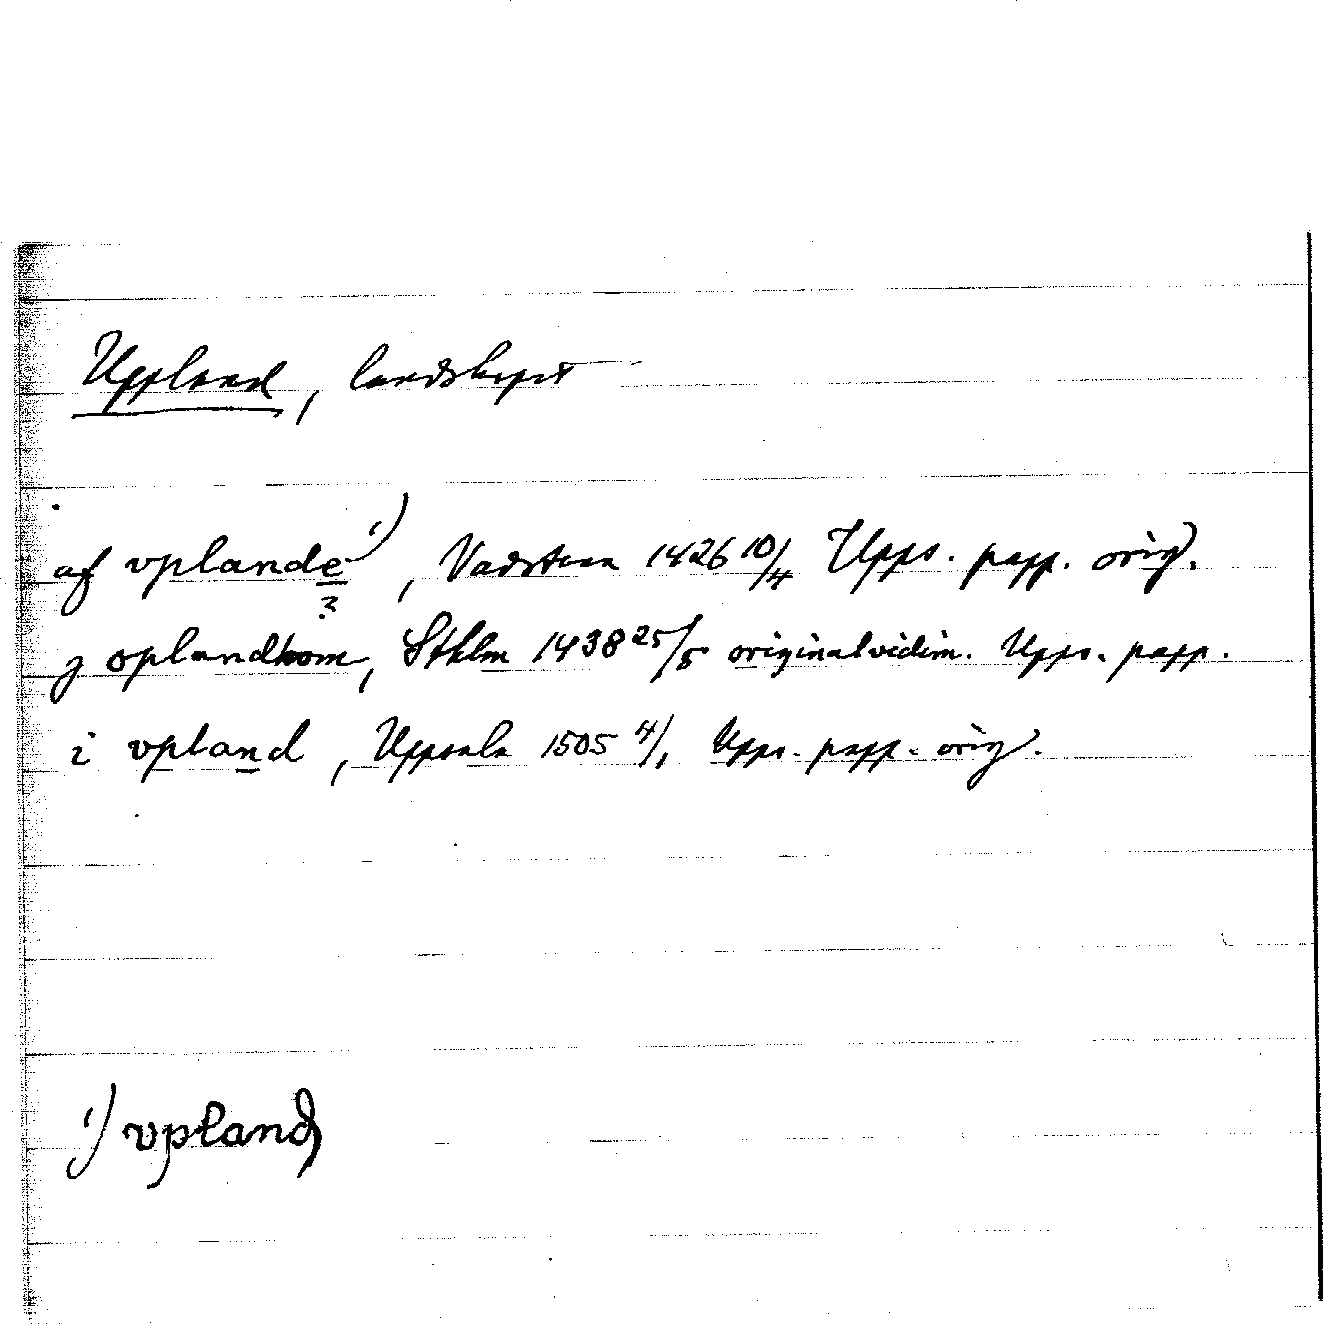 Uppland, landskapet
af vplande ¹), Vadstena 1426 10/4 Upps. papp. orig.
?
j oplandhom, Sthlm 1438 25/5 originalvidim. Upps. papp.
i vpland, Uppsala 1505 4/1 Upps. papp. orig.
¹) vpland